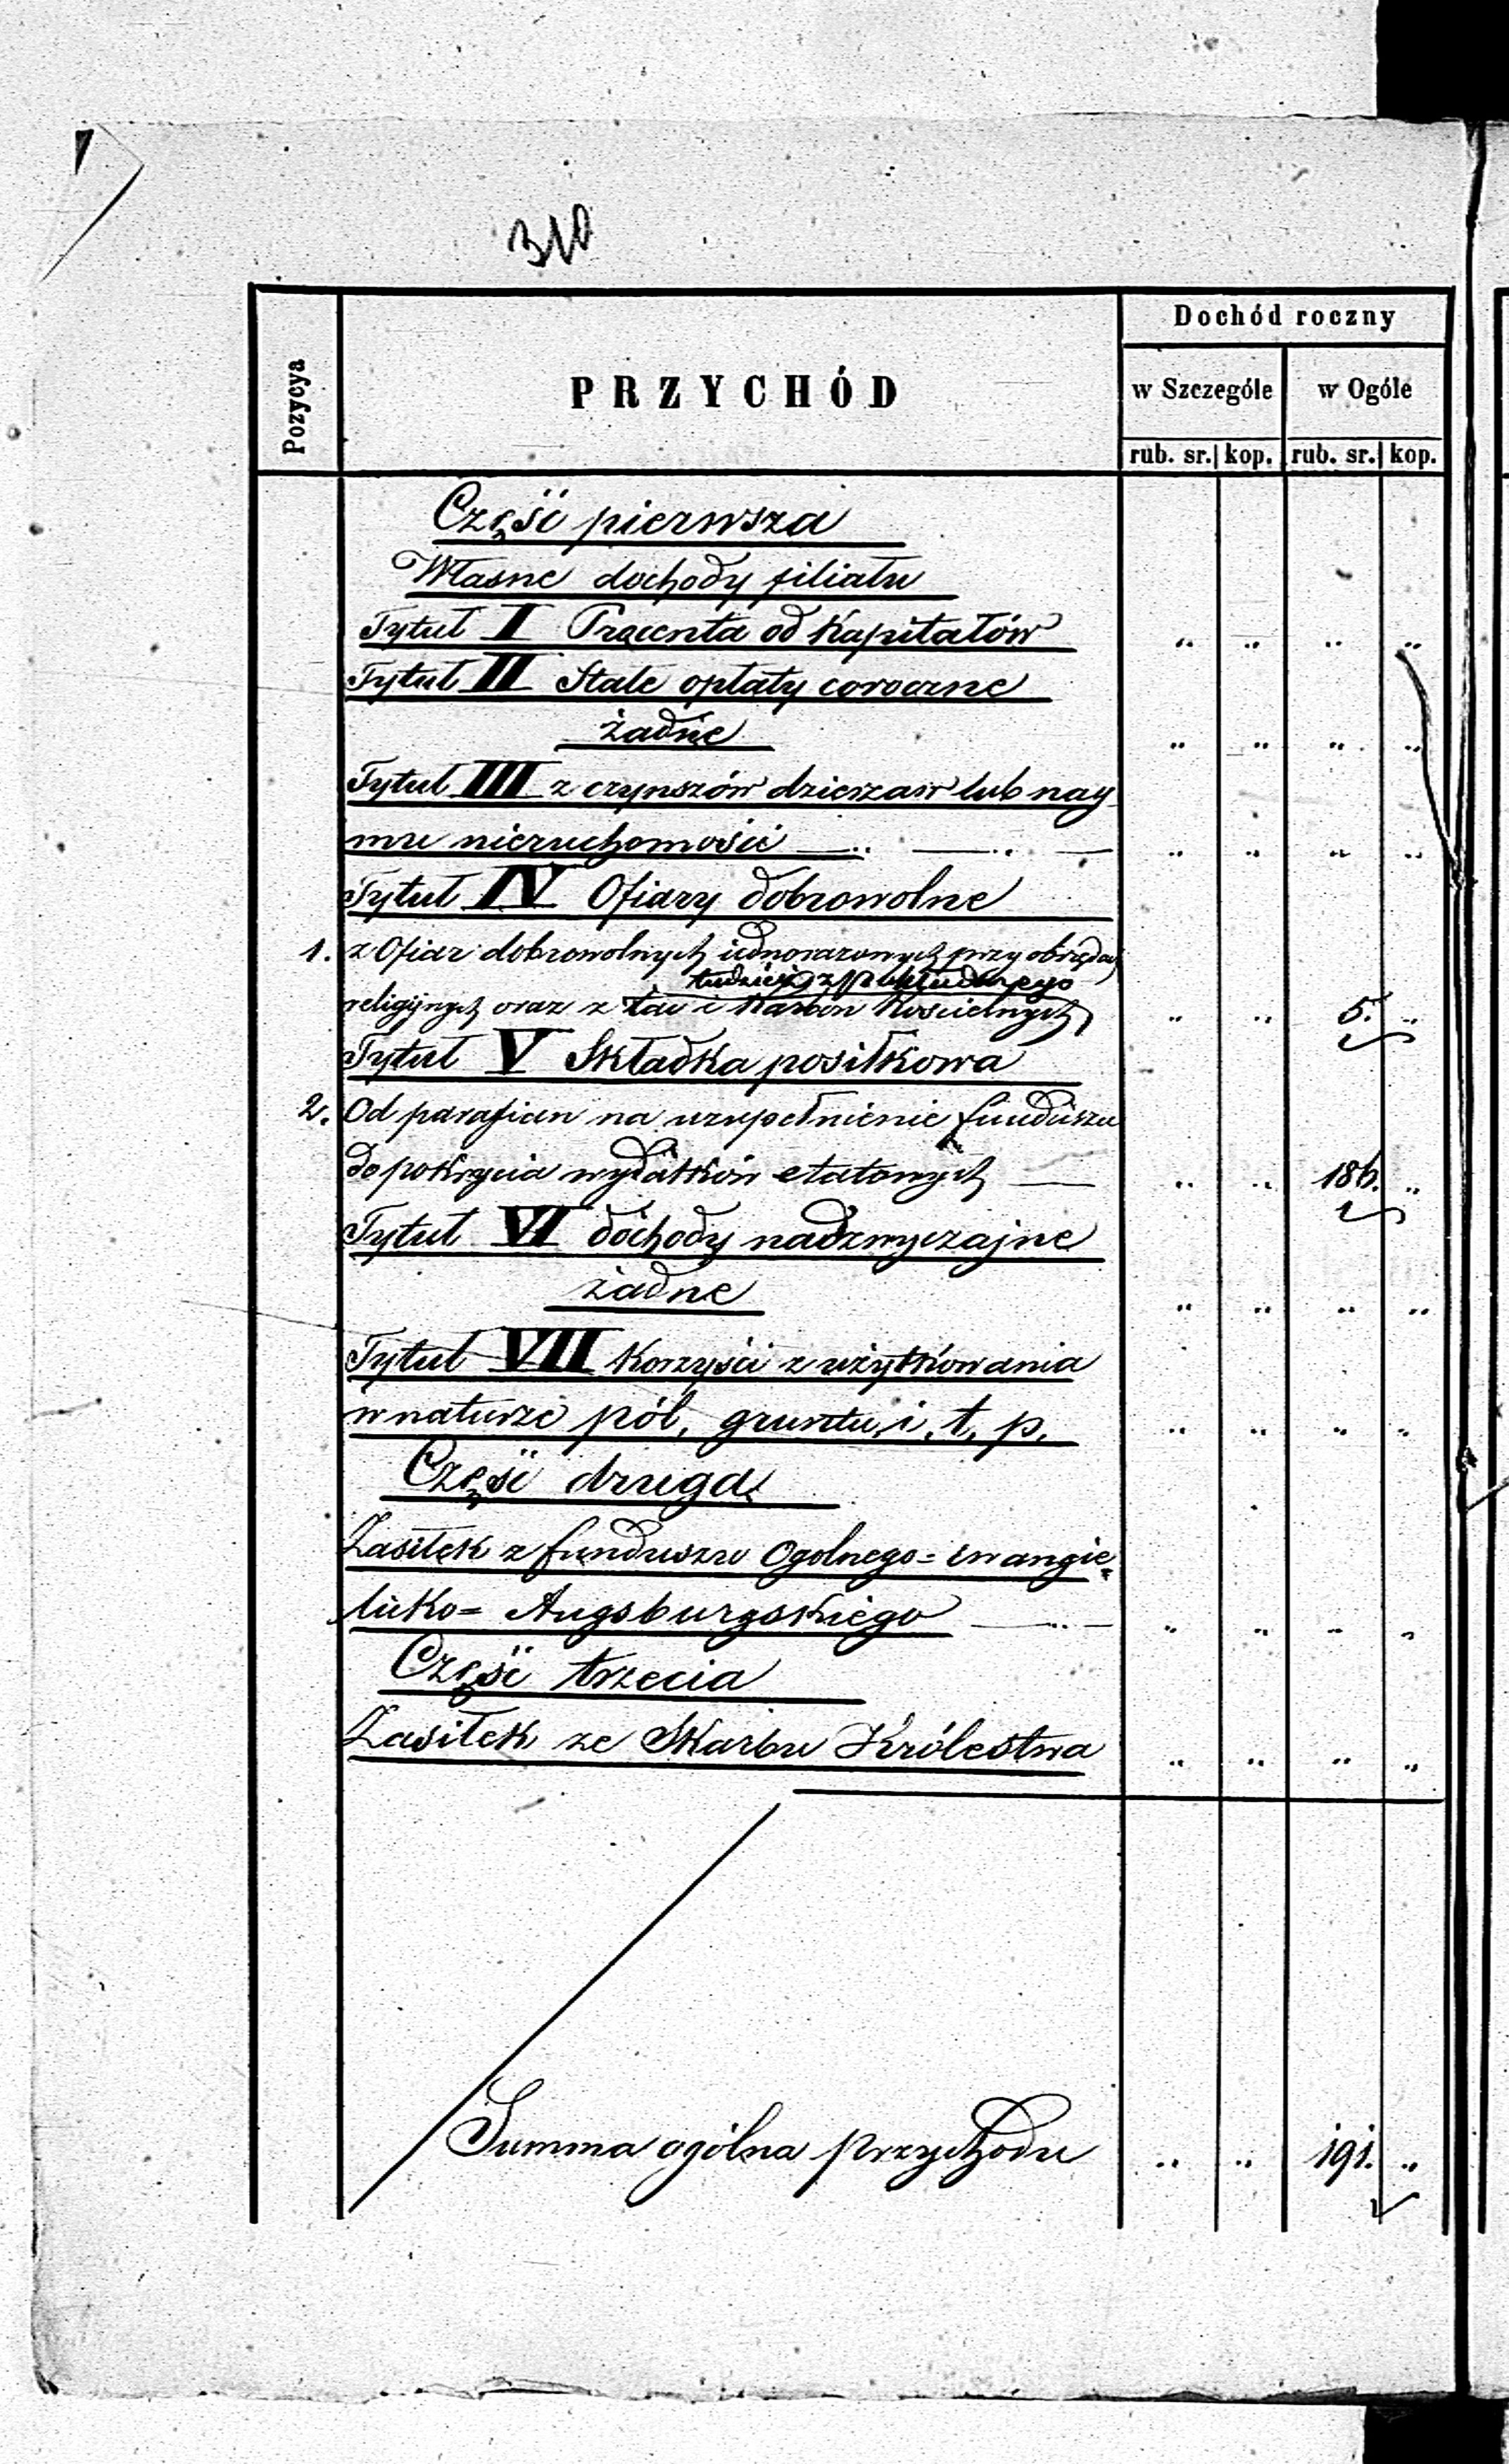 310
Dochód roczny
Pozycya
PRZYCHÓD
w Szczególe w Ogóle
rub. sr. kop. rub. sr. kop.
Część pierwsza
Własne dochody filiału
Tytuł I Procenta od Kapitałów " " " "
Tytuł II Stałe opłaty coroczne
żadne " " " "
Tytuł III z czynszów dzierzaw lub nay
mu nieruchomości " " " "
Tytuł IV Ofiary dobrowolne
1. z Ofiar dobrowolnych iednorazowych przy obrzędach
tudzież z
religijnych oraz z tac i Karbon Kościelnych " " 5. "
Tytuł V Składka posiłkowa
2. Od parafian na uzupełnienie funduszu
do pokrycia wydatków etatowych " " 186. "
Tytuł VI dochody nadzwyczajne
żadne " " " "
Tytuł VII Korzyści z użytkowania
w naturze pól, gruntu, i, t, p. " " " "
Część druga
Zasiłek z funduszu Ogolnego= Ewangie
licko= Augsburgskiego " " " "
Część trzecia
Zasiłek ze Skarbu Królestwa " " " "
Summa ogólna przychodu " " 191. "